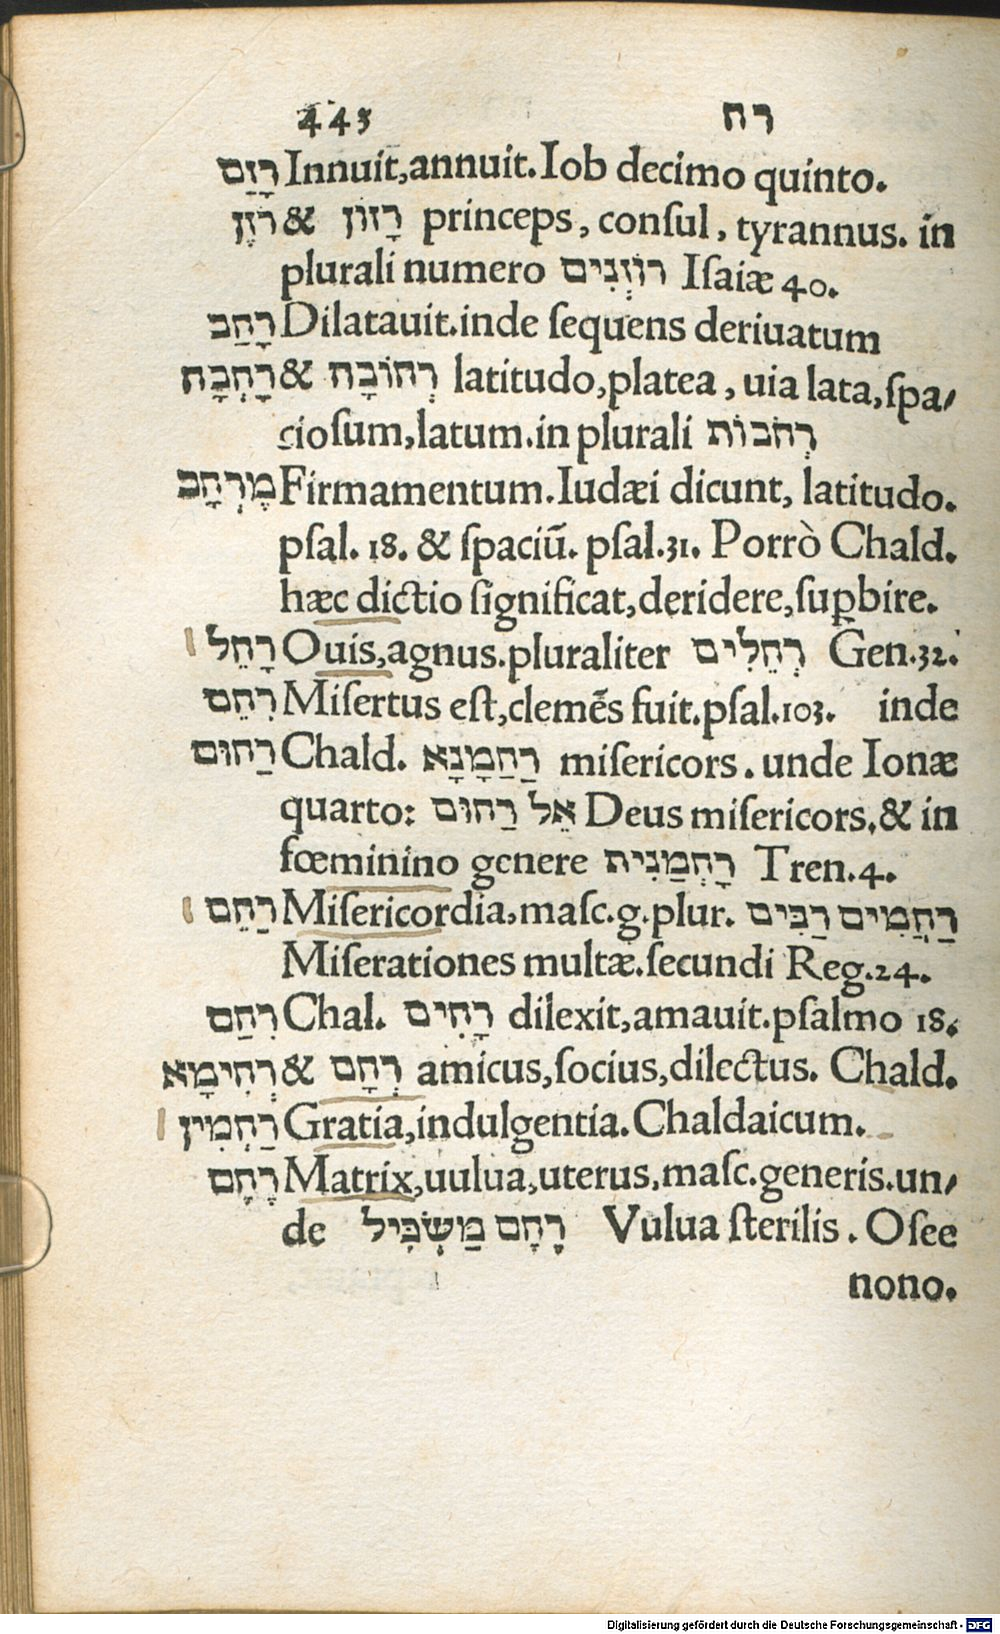 443 רח
רָזַם Innuit,annuit.Iob decimo quinto.
רֹזֶן & רָזוֹן princeps, conſul, tyrannus. in
plurali numero רוֹזְנִים Iſaiæ 40.
רָחַב Dilatauit.inde ſequens deriuatum
רָחְבָה & רְחוֹבָה latitudo,platea, uia lata,ſpa⸗
cioſum,latum.in plurali רְחֹבוֹת
מֶרְחָב Firmamentum.Iudæi dicunt, latitudo.
pſal. 18. & ſpaciũ. pſal.31. Porrò Chald.
hæc dictio ſignificat,deridere,ſuꝑbire.
רָחֵל Ouis,agnus.pluraliter רְחֵלִים Gen.32.
רִחֵם Miſertus eſt,clemẽs fuit.pſal.103. inde
רַחוּם Chald. רַחֲמָנָא miſericors. unde Ionæ
quarto: אֵל רַחוּם Deus miſericors.& in
fœminino genere רָחְמַנִית Tren.4.
רַחֵם Miſericordia,maſc.g.plur. רַחֲמִים רַבִּים
Miſerationes multæ.ſecundi Reg.24.
רִחַם Chal. רָחִים dilexit,amauit.pſalmo 18.
רְחִימָא & רְחָם amicus,ſocius,dilectus. Chald.
רַחְמִין Gratia,indulgentia.Chaldaicum.
רֶחֶם Matrix,uulua,uterus,maſc.generis.un⸗
de רֶחֶם מַשְׂכִּיל Vulua ſterilis. Oſee
nono.
Digitalisierung gefördert durch die Deutsche Forschungsgemeinschaft - DFG